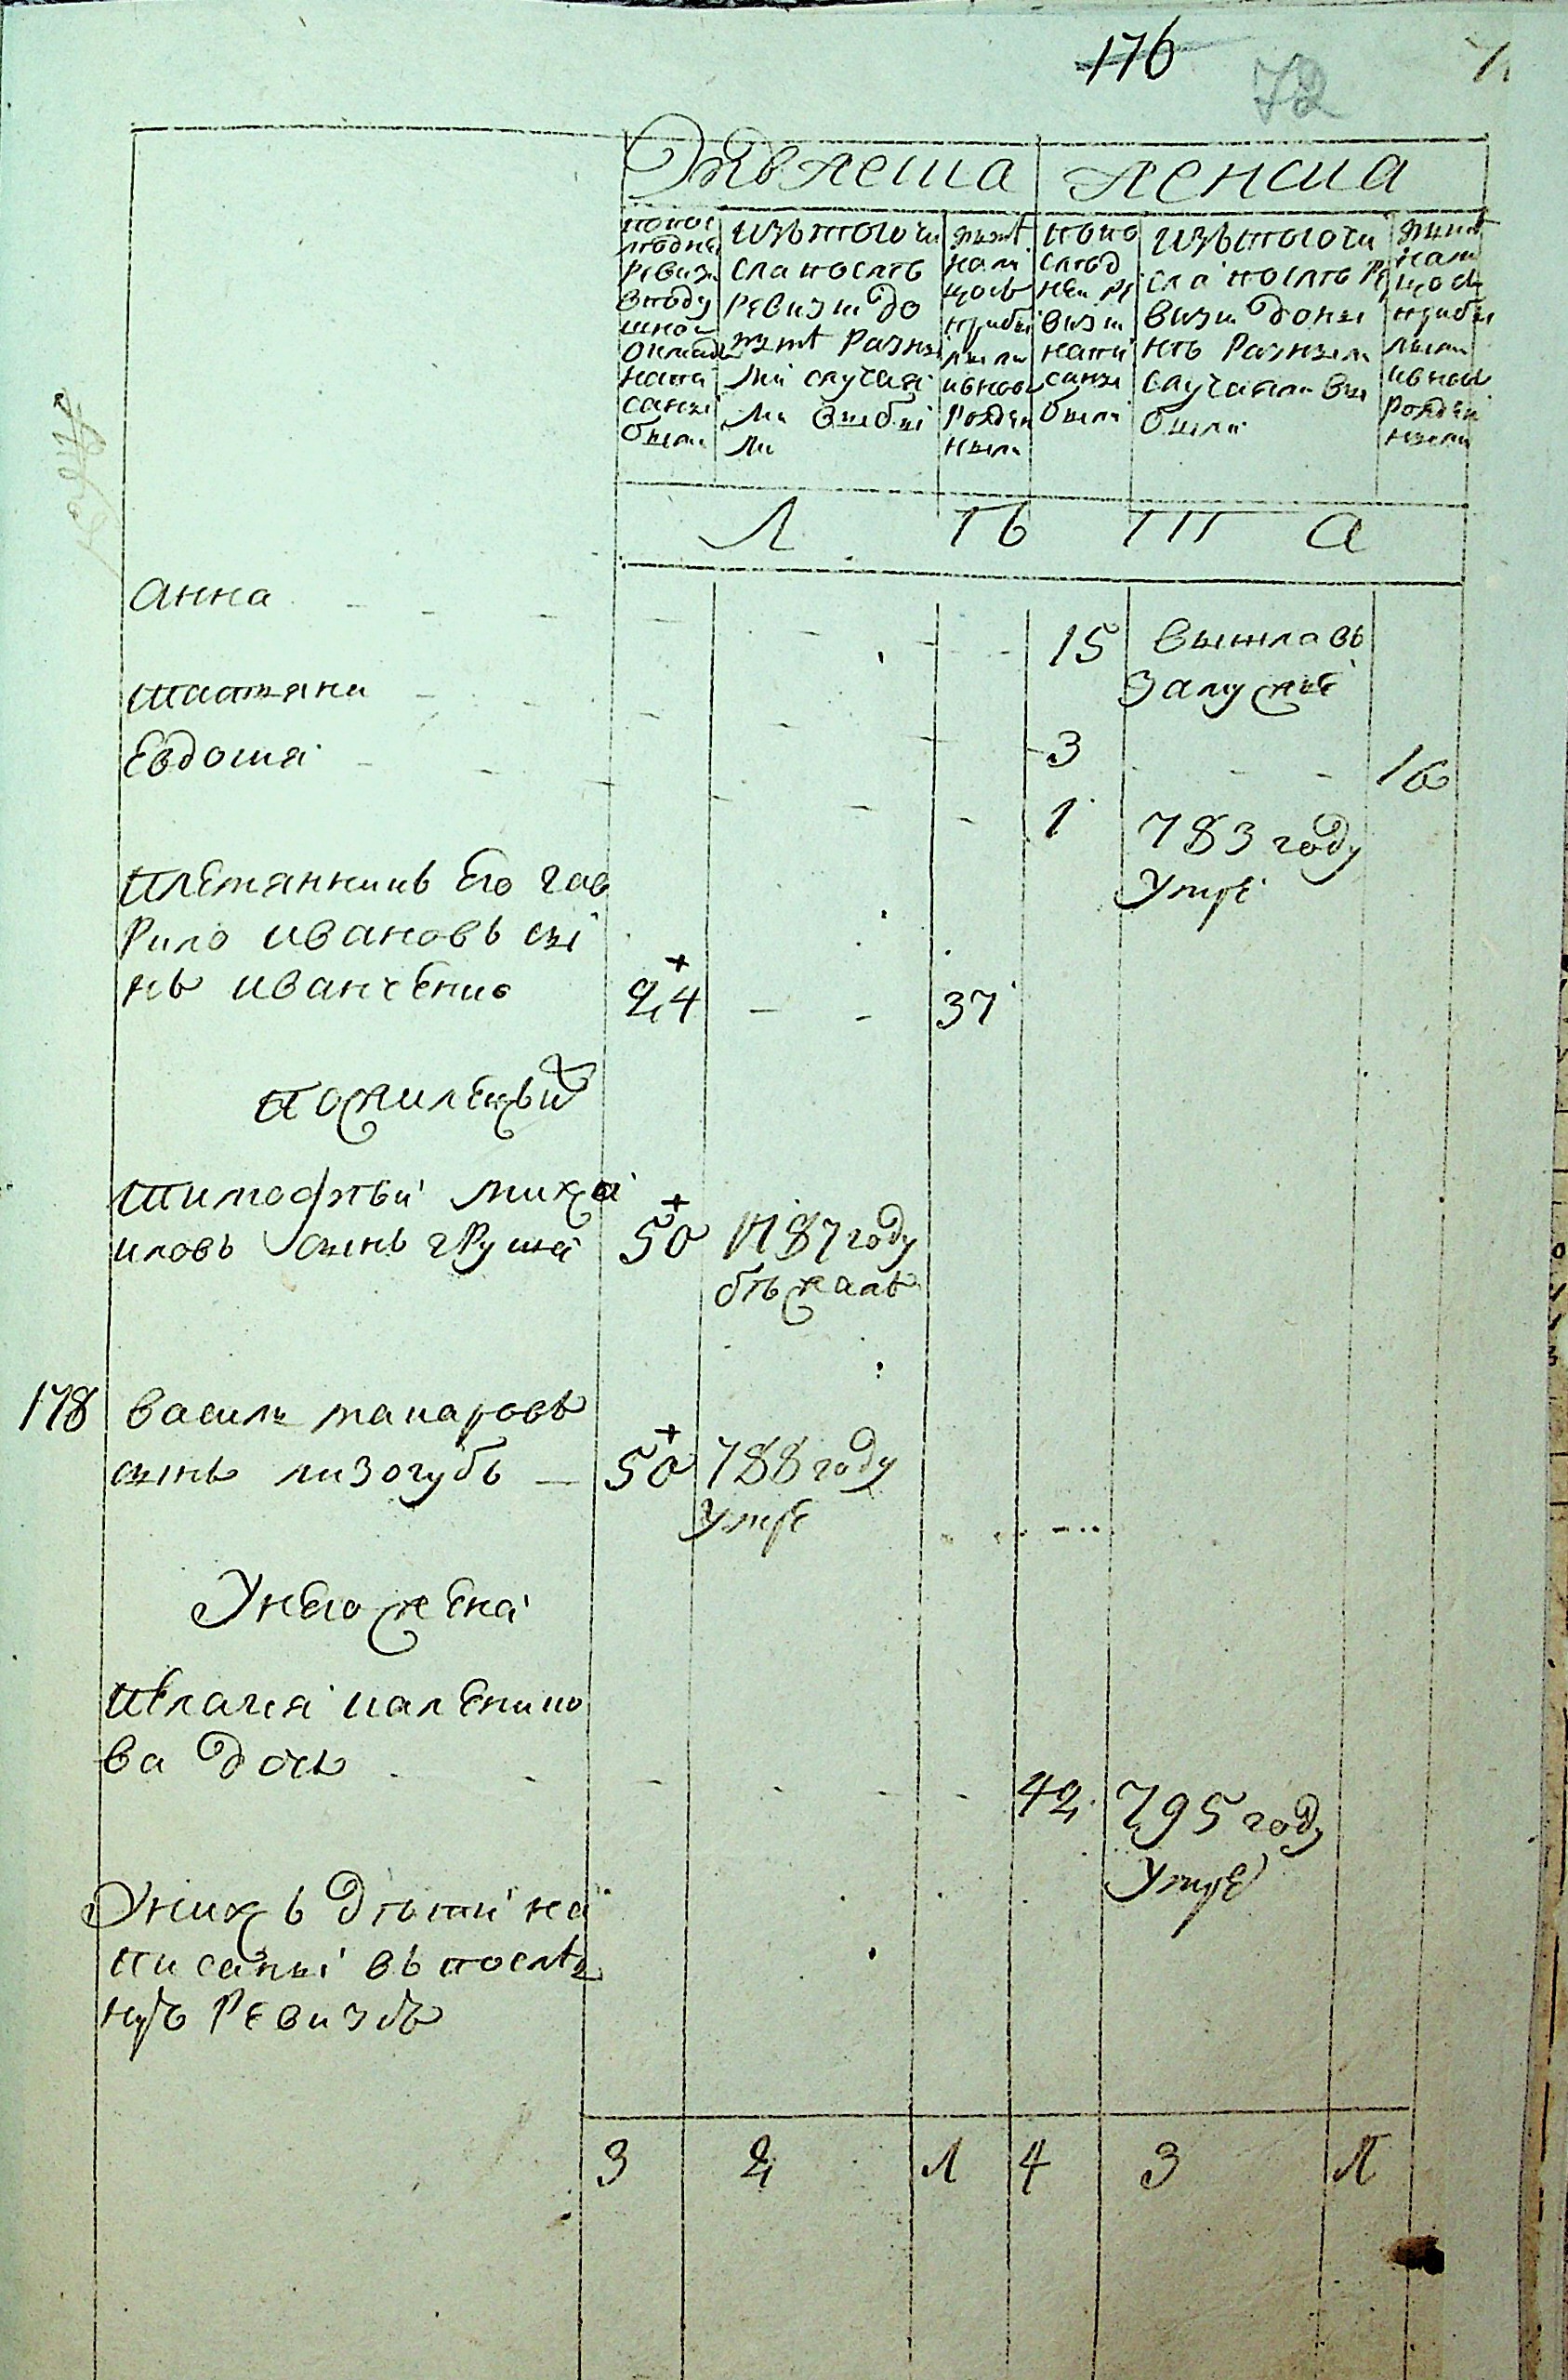 176
72
Явлеша ленсиа
попос
лѣдне
ревизи
вподу
шной
окладе
напи
саны
были
изътого чи
сла послѣ
ревизии до
нынѣ разны
ми случая
ми выбы
ли
нынѣ
нали
цось
прибы
лыми
ивнов
рожден
ными
попо
слѣд
ней ре
визи
напи
саны
были
изътого чи
сла послѣ ре
визи доны
нѣ разными
случаями вы
были
нынѣ
нали
цось
прибы
лыми
ивнов
рожден
ными
Л ѣ т а
анна 15 вышла въ
замужие
татяна 3 16
Евдокия 1 783 году
умре
племянникъ Его гав
рило ивановъ сы
нъ иванченко 24 37
пожилецкый
тимофѣй михаи
иловъ сынъ груша 50 1787 году
бѣжалъ
178 василь макаровъ
сынъ лизогубъ 50 788 году
умре
Унего жена
пелагия каленико
ва дочь 42 795 году
умре
Унихъ дѣти на
писаны въ послѣ
нуъ ревизъ
3 2 1 4 3 1